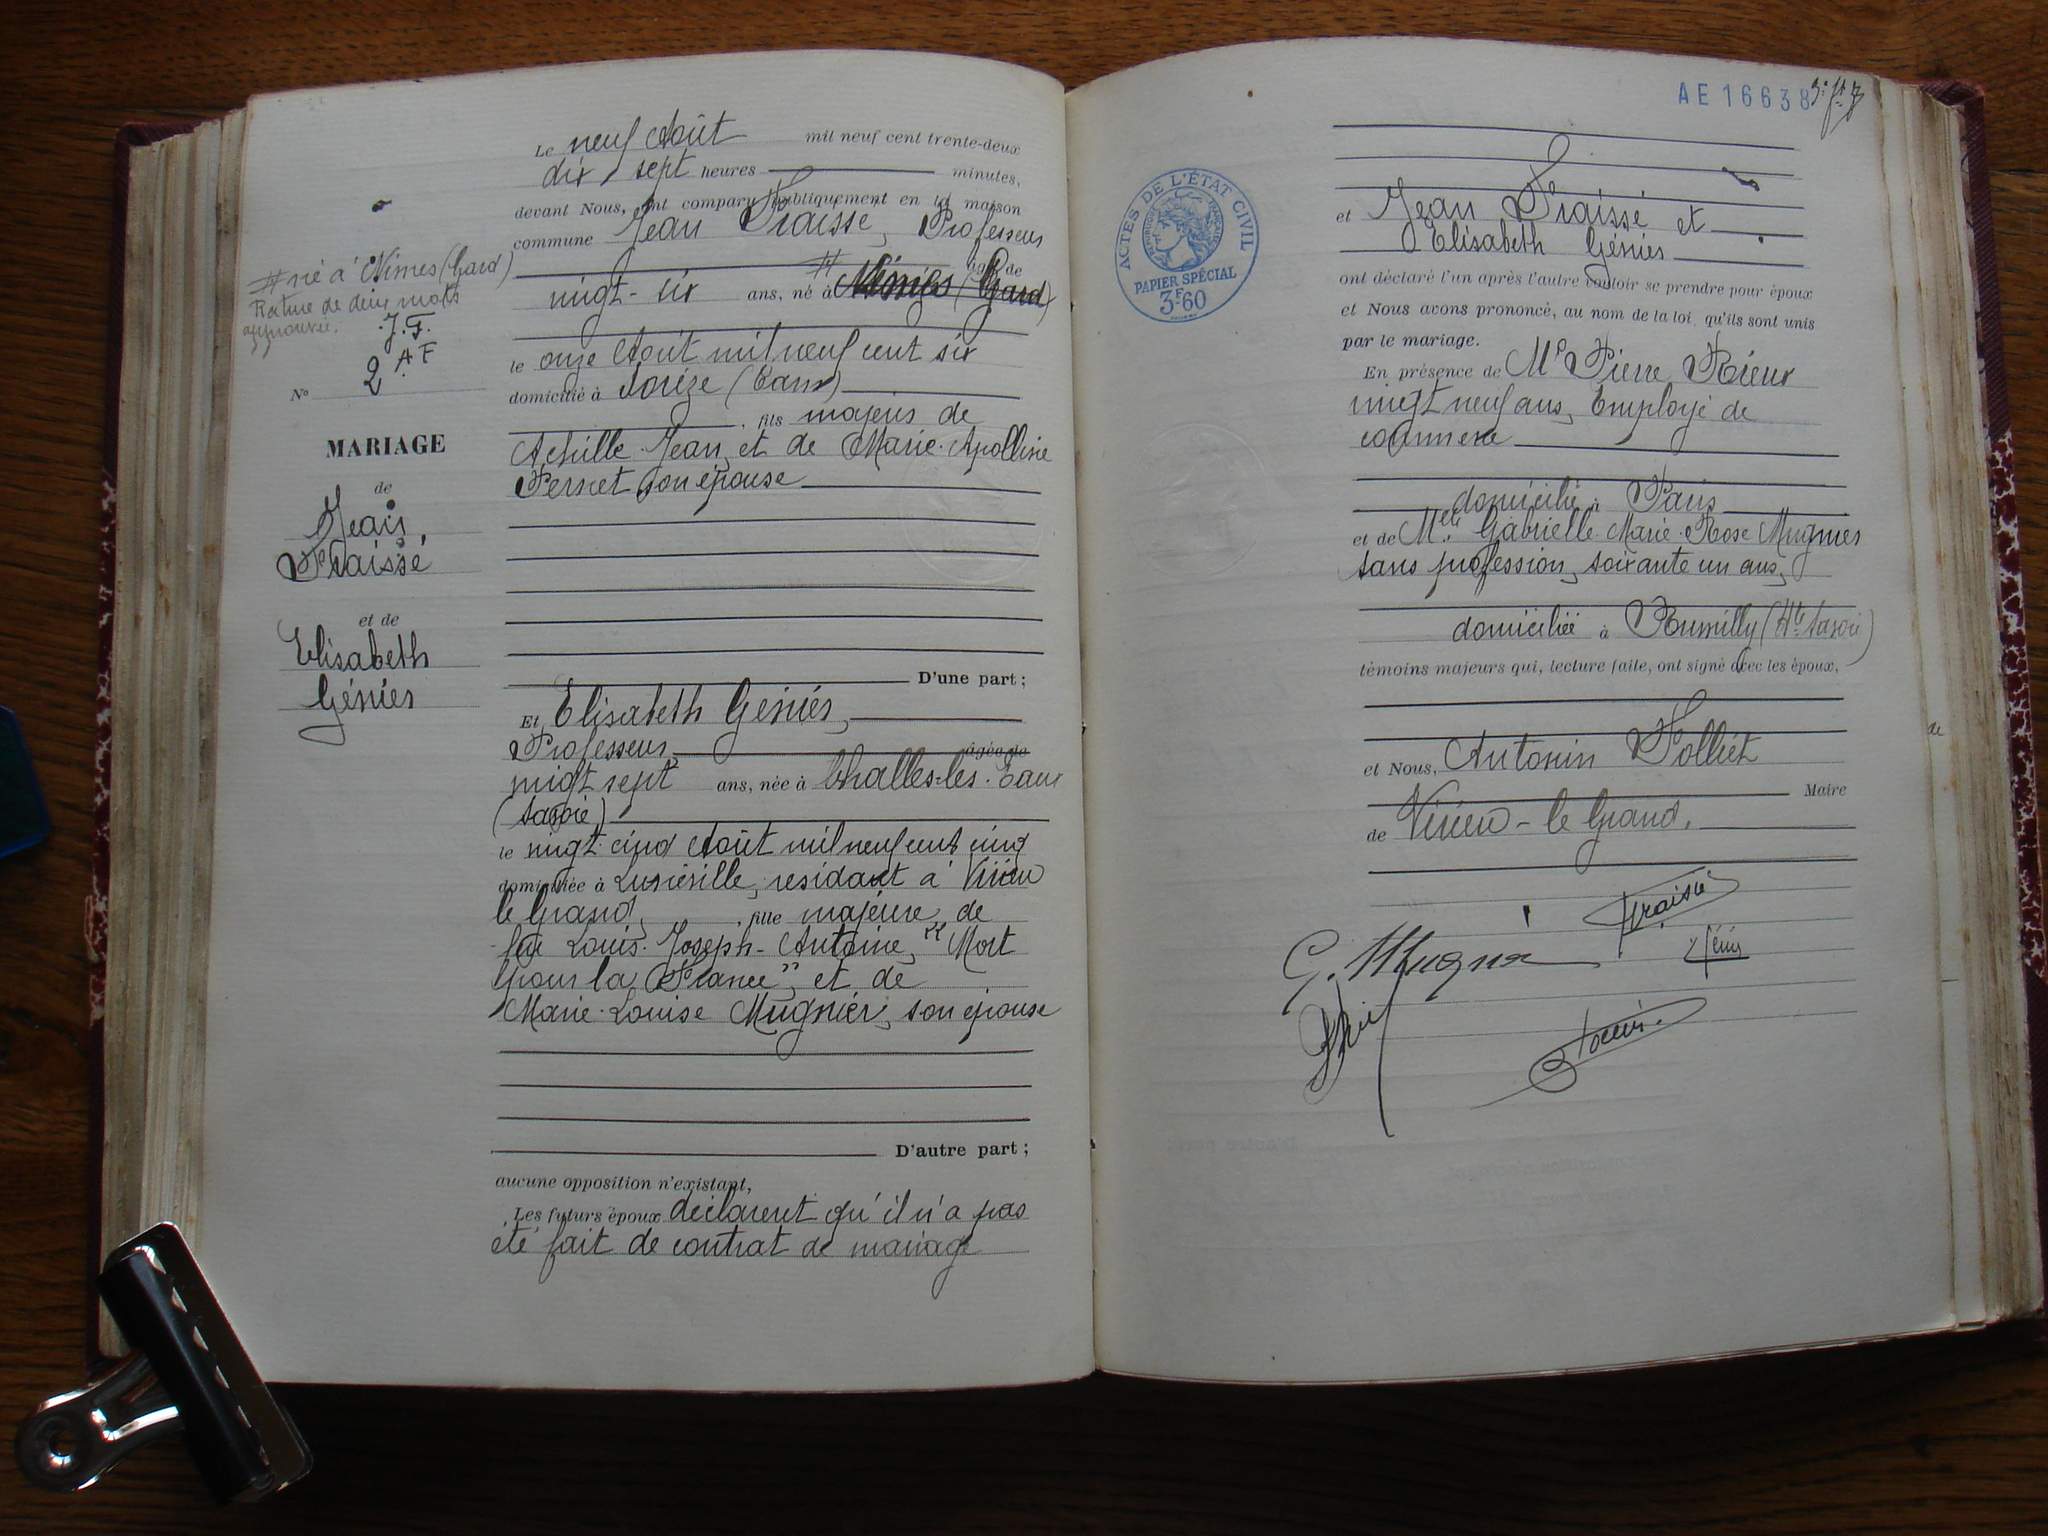 Le neuf Août mil neuf cent trente-deux
dix sept heures minutes,
devant Nous, ont comparu publiquement en la maison
commune Jean Fraissé, Professeur
# âgé de
vingt-six ans, né à Nîmes (Gard)
le onze Août mil neuf cent six
domicilié à Sorèze (Tarn)
, fils majeur de
Achille Jean, et de Marie Apolline
Pernet son épouse
D'une part ;
Et Elisabeth Géniés,
Professeur, âgée de
vingt sept ans, née à Challes-les-Eaux
(Savoie)
le vingt cinq Août mil neuf cent cinq
domiciliée à résidant à Virieu
le Grand, , fille majeure de
feu Louis-Joseph-Antoine, "Mort
pour la France", et de
Marie-Louise Mugnier, son épouse
D'autre part ;
aucune opposition n'existant,
Les futurs époux déclarent qu'il n'a pas
été fait de contrat de mariage
# né à Nimes (Gard)
Rature de deux mots
approuvée.
J. F.
A F
No 2
MARIAGE
de
Jean
Fraissé
et de
Elisabeth
Géniés
AE 16638
ACTES DE L'ÉTAT CIVIL
RÉPUBLIQUE FRANÇAISE
PAPIER SPÉCIAL
3F60
et Jean Fraissé et
Elisabeth Géniés
ont déclaré l'un après l'autre vouloir se prendre pour époux
et Nous avons prononcé, au nom de la loi, qu'ils sont unis
par le mariage.
En présence de Mr Pierre Rieux
vingt neuf ans, Employé de
commerce
domicilié à Paris
et de Melle Gabrielle Marie-Rose Mugnier
sans profession, soixante un ans,
domiciliée à Rumilly (Hte Savoie)
témoins majeurs qui, lecture faite, ont signé avec les époux,
et Nous, Antonin Folliet
Maire
de Virieu-le Grand.
Fraissé
G. Mugnier
E Géniés